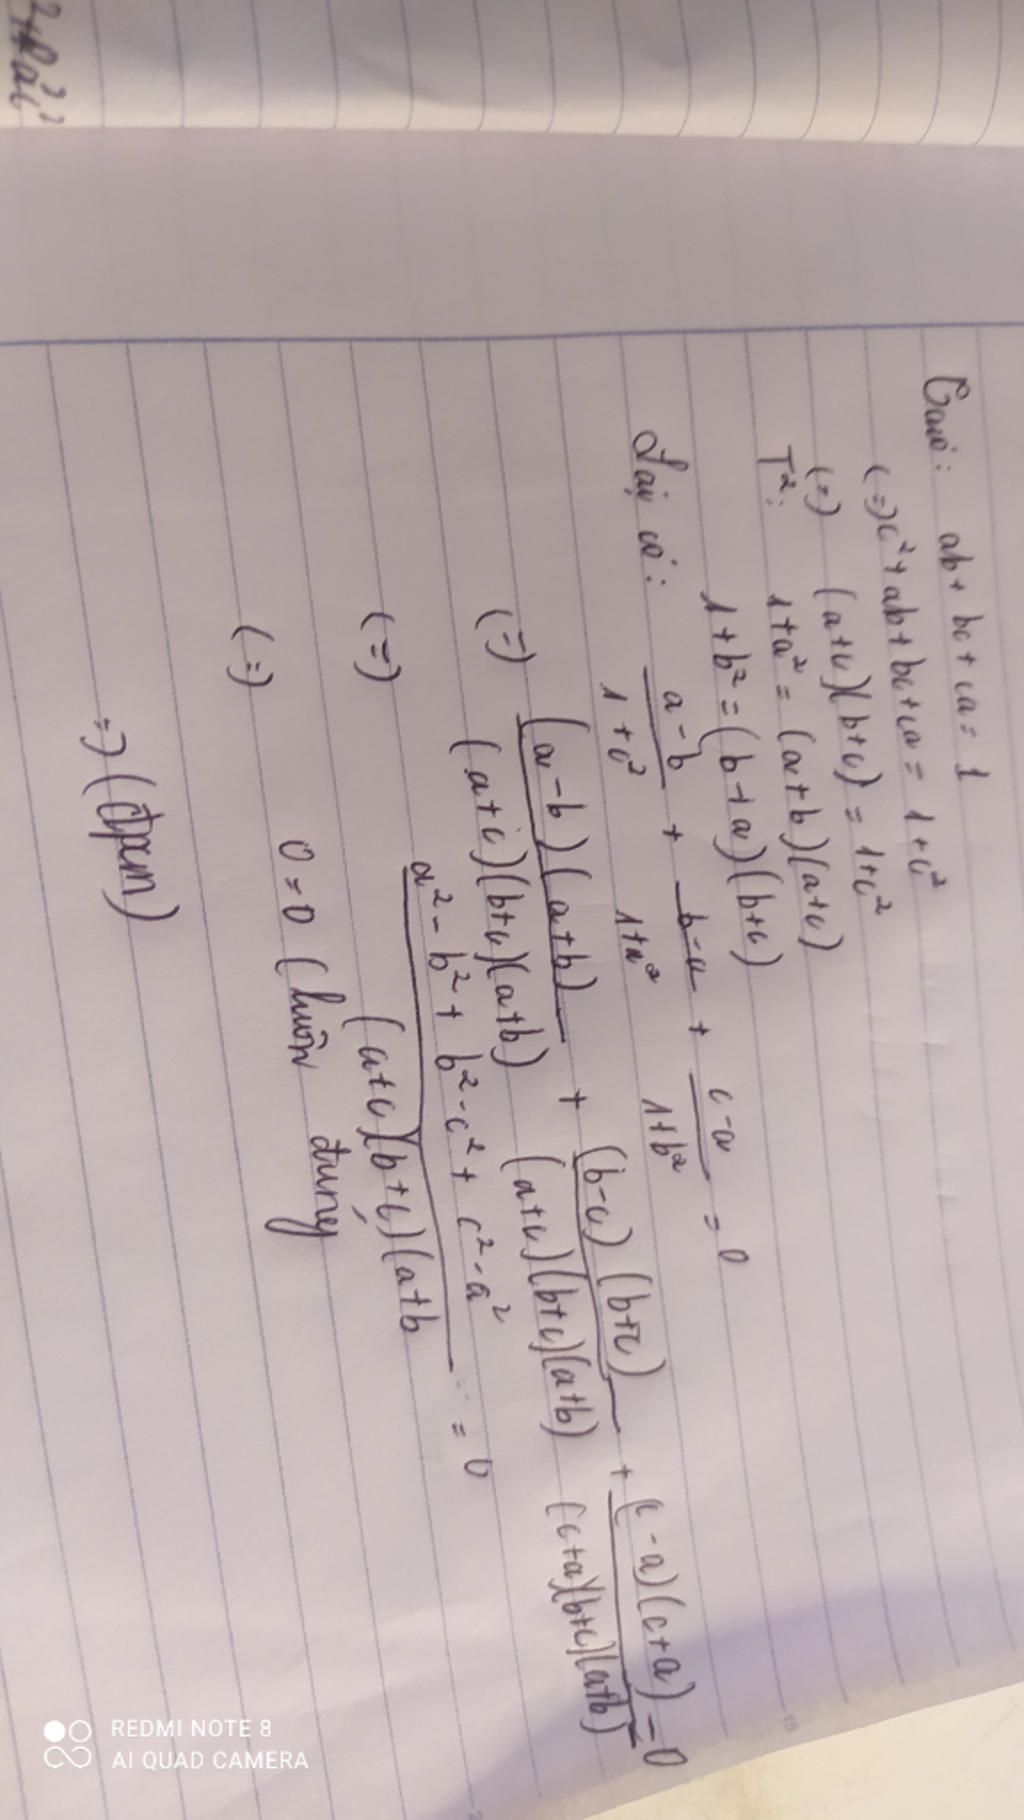 Ta có: ab + bc + ca = 1
(=) c² + ab + bc + ca = 1 + c²
(=) (a+c)(b+c) = 1+c²
T²: 1+a² = (a+b)(a+c)
1+b² = (b+a)(b+c)
Lại có: \frac{a-b}{1+c²} + \frac{b-c}{1+a²} + \frac{c-a}{1+b²} = 0
(=) \frac{(a-b)(a+b)}{(a+c)(b+c)(a+b)} + \frac{(b-c)(b+c)}{(a+c)(b+c)(a+b)} + \frac{(c-a)(c+a)}{(c+a)(b+c)(a+b)} = 0
(=) \frac{a² - b² + b² - c² + c² - a²}{(a+c)(b+c)(a+b} = 0
(=) 0 = 0 (luôn đúng
=) (đpcm)
REDMI NOTE 8
AI QUAD CAMERA